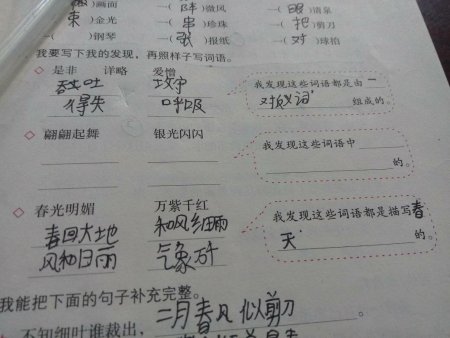 画面 一( 阵 )微风 一( 眼 )清泉
一( 束 )金光 一( 串 )珍珠 一( 把 )剪刀
一( )钢琴 一( 张 )报纸 一( 对 )球拍
我要写下我的发现，再照样子写词语。
◇ 是非 详略 爱憎
吞吐 攻守
得失 呼吸
我发现这些词语都是由一
对反义词 组成的。
◇ 翩翩起舞 银光闪闪
我发现这些词语中
的。
◇ 春光明媚 万紫千红
春回大地 和风细雨
风和日丽 气象万千
我发现这些词语都是描写春
天 的。
我能把下面的句子补充完整。
不知细叶谁裁出，二月春风似剪刀